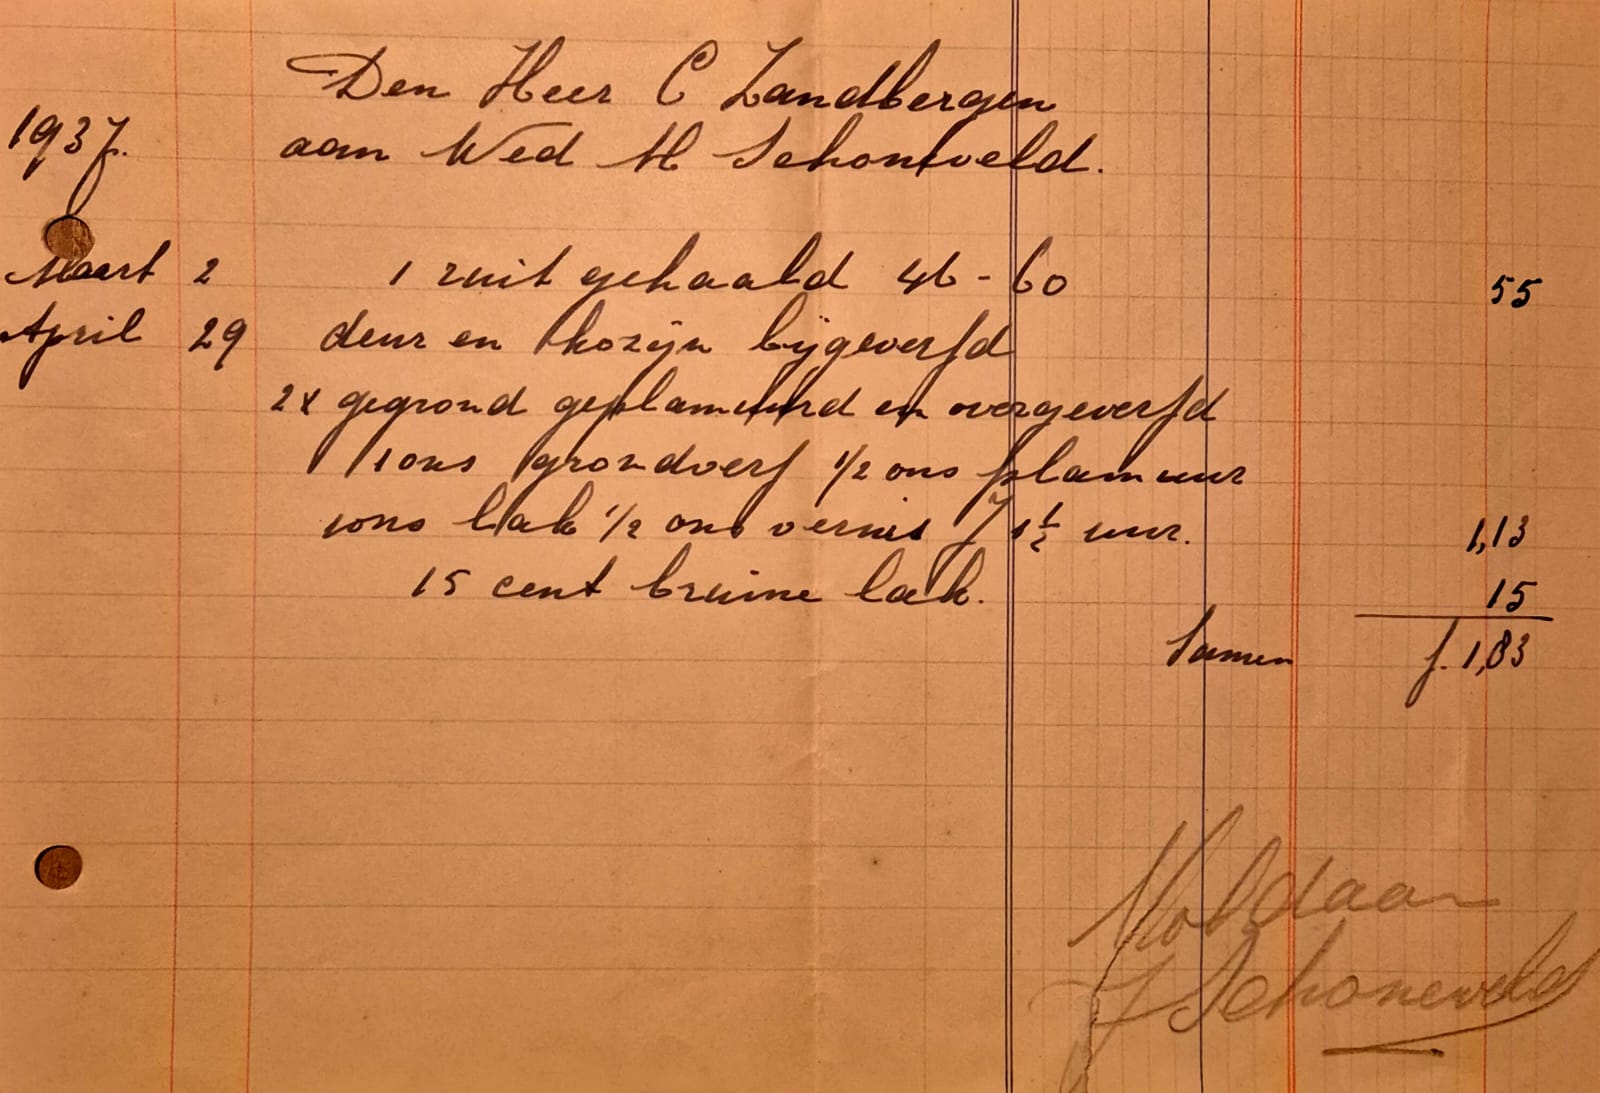 Den Heer C Zandbergen
1937.
aan Wed M Schoneveld.
Maart 2 1 ruit gehaald 46 - 60 55
April 29 deur en kozijn bijgeverfd
2x gegrond geplamuurd en overgeverfd
1 ons grondverf 1/2 ons plamuur
1 ons lak 1/2 ons vernis J 1 1/2 uur. 1,13
15 cent bruine lak. 15
Samen f. 1,83
Voldaan
J Schoneveld